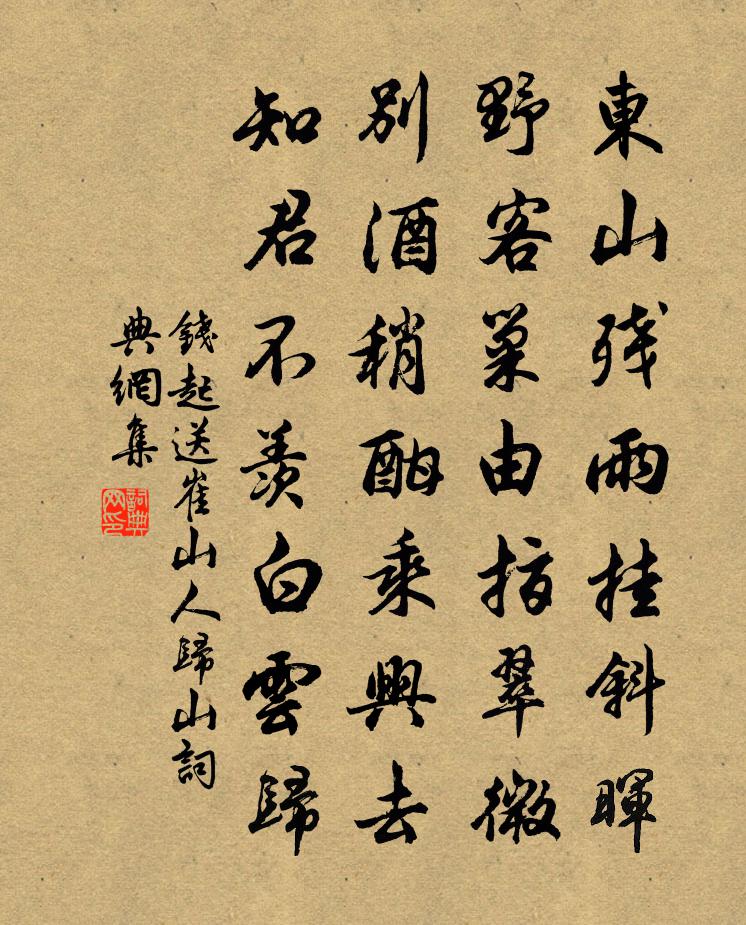 東山残雨挂斜暉
野客巢由指翠微
別酒稍酣乘興去
知君不羨白雲歸
錢起送崔山人歸山詞
典網集
詞典网印